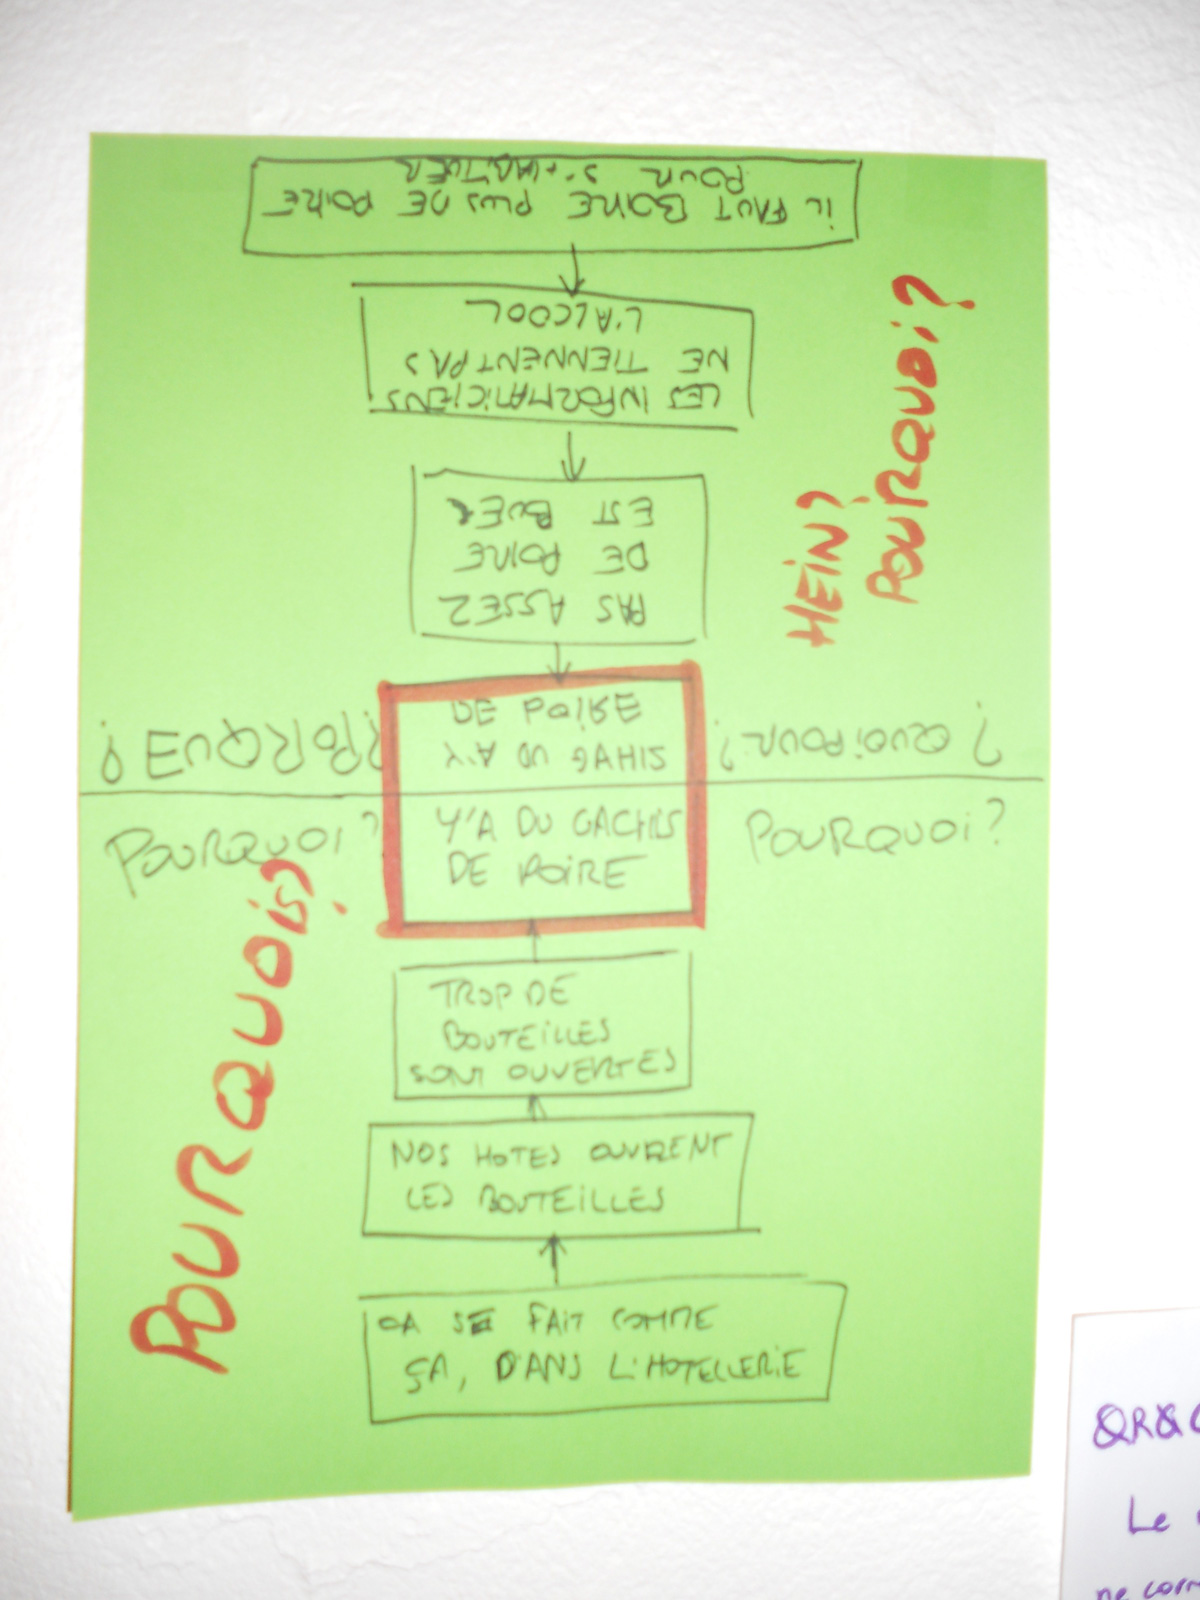 IL FAUT BOIRE PLUS DE POIRE
POUR S'HABITUER
LES INFORMATICIENS
NE TIENNENT PAS
L'ALCOOL
PAS ASSEZ
DE POIRE
EST BUE
HEIN?
POURQUOI?
Y'A DU GAHIS
DE POIRE
¿PORQUE?
? QUOIPOUR?
Y'A DU GACHIS
DE POIRE
POURQUOI?
POURQUOI?
POURQUOI?
TROP DE
BOUTEILLES
SONT OUVERTES
NOS HOTES OUVRENT
LES BOUTEILLES
CA SE FAIT COMME
ÇA, DANS L'HOTELLERIE
Le
ne